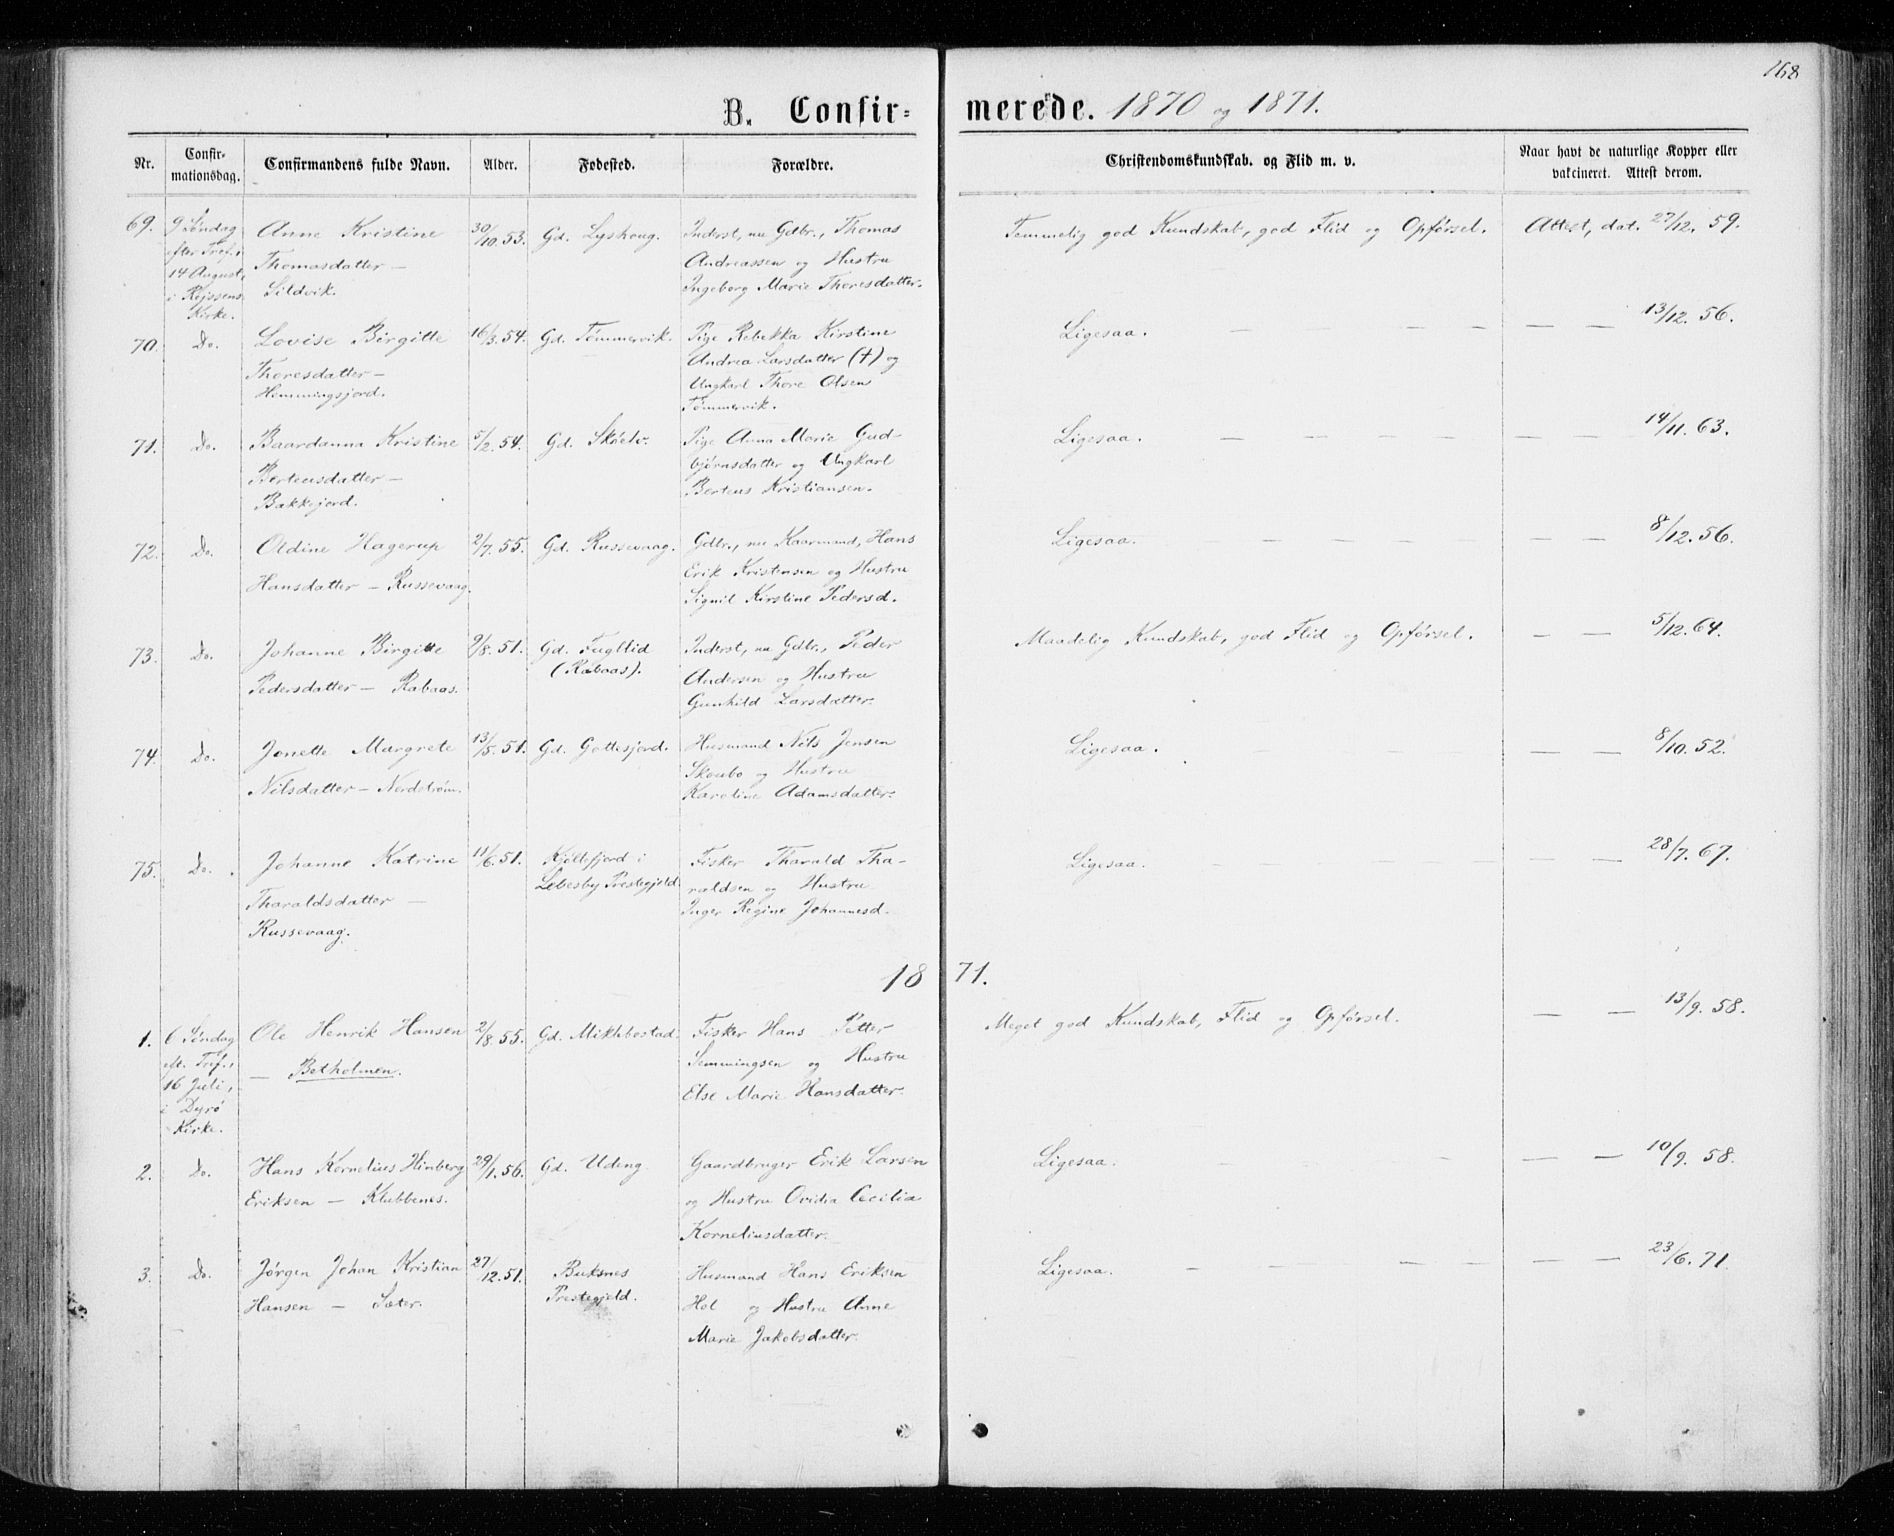 168
B. Confirmerede. 1870 og 1871.
Nr.
Confirmationsdag.
Confirmandens fulde Navn.
Alder.
Fødested.
Forældre.
Christendomskundskab. og Flid m. v.
Naar havt de naturlige Kopper eller
vakcineret. Attest derom.
69. 9 Søndag Anne Kristine 30/10. 53. Gd. Lyshoug. Inderst, nu Gdbr., Thomas Temmelig god Kundskab, god Flid og Opførsel. Attest, dat. 27/12. 59.
efter Tref.: Thomasdatter — Andreassen og Hustru
14 August, Lildvik. Ingeborg Marie Thoresdatter.
i Rejssens
Kirke.
70. Do. Lovise Birgitte 16/3. 54. Gd. Tømmervik. Pige Rebekka Kirstine Ligesaa. — — — — — 13/12. 56.
Thoresdatter — Andrea Larsdatter (†) og
Hemmingsjord. Ungkarl Thore Olsen
Tømmervik.
71. Do. Baardanna Kristine 5/2. 54. Gd. Skóelv. Pige Anna Marie Gud- Ligesaa. — — — — — — 14/11. 63.
Berteusdatter — bjørnsdatter og Ungkarl
Bakkejord. Berteus Kristiansen.
72. Do. Oldine Hagerup 2/7. 55. Gd. Russevaag. Gdbr., nu Kaarmand, Hans Ligesaa. — — — — — 8/12. 56.
Hansdatter — Russevaag. Erik Kristensen og Hustru
Signil Kirstine Pedersd.
73. Do. Johanne Birgitte 9/8. 51. Gd. Fuglelid Inderst, nu Gdbr., Peder Maadelig Kundskab, god Flid og Opførsel. — — 5/12. 64.
Pedersdatter — Rabaas. (Rabaas). Andersen og Hustru
Gunhild Larsdatter.
74. Do. Jonette Margrete 13/5. 51. Gd. Gottesjord. Husmand Nils Jensen Ligesaa. — — — — 8/10. 52.
Nilsdatter — Nordstrøm. Skoubo og Hustru
Karoline Adamsdatter.
75. Do. Johanne Katrine 11/6. 51. Kjøllefjord i Fisker Tharald Tha- Ligesaa. — — — — — 28/7. 67.
Tharaldsdatter — Lebesby Prestegjeld. raldsen og Hustru
Russevaag. Inger Regine Johannesd.
1871.
1. 6 Søndag Ole Henrik Hansen 2/8. 55. Gd. Mikkbostad. Fisker Hans Petter Meget god Kundskab, Flid og Opførsel. — — 13/9. 58.
eft. Tref.: — Betholmen. Semmingsen og Hustru
16 Juli, Else Marie Hansdatter.
i Dyrø
Kirke.
2. Do. Hans Kornelius Hinberg 29/1. 56. Gd. Udeng. Gaardbruger Erik Larsen Ligesaa. — — — — — 10/9. 58.
Eriksen — Klubbenes. og Hustru Ovidia Cecilia
Korneliusdatter.
3. Do. Jørgen Johan Kristian 27/12. 51. Buksnes Husmand Hans Eriksen Ligesaa. — — — — — 23/6. 71.
Hansen — Sæter. Prestegjeld. Hol og Hustru Anne
Marie Jakobsdatter.